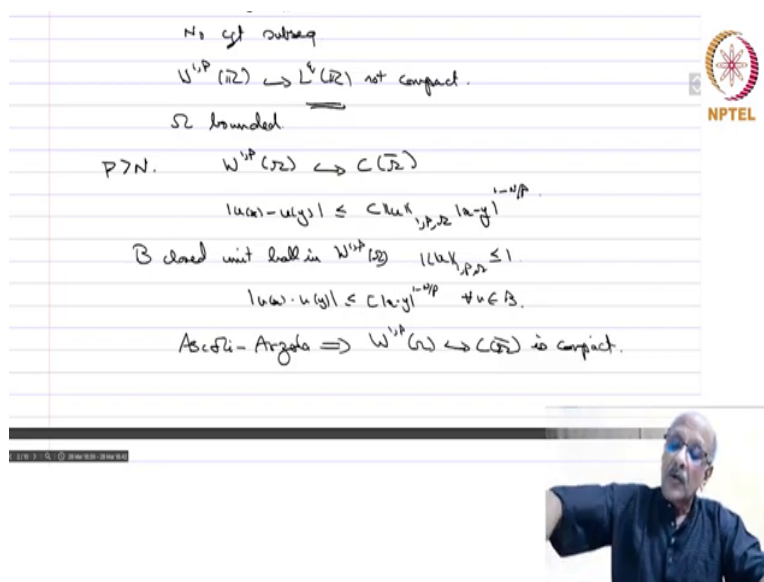 No cgt subseq
W^{1,p}(Ω) ↪ L^q(Ω) not compact.
Ω bounded.
P>N. W^{1,p}(Ω) ↪ C(Ω̄)
|u(x)-u(y)| ≤ C‖u‖_{1,p,Ω} |x-y|^{1-N/p}.
B closed unit ball in W^{1,p}(Ω) ‖u‖_{1,p,Ω} ≤ 1
|u(x)-u(y)| ≤ C|x-y|^{1-N/p} ∀u∈B.
Ascoli-Arzela ⟹ W^{1,p}(Ω) ↪ C(Ω̄) is compact.
NPTEL